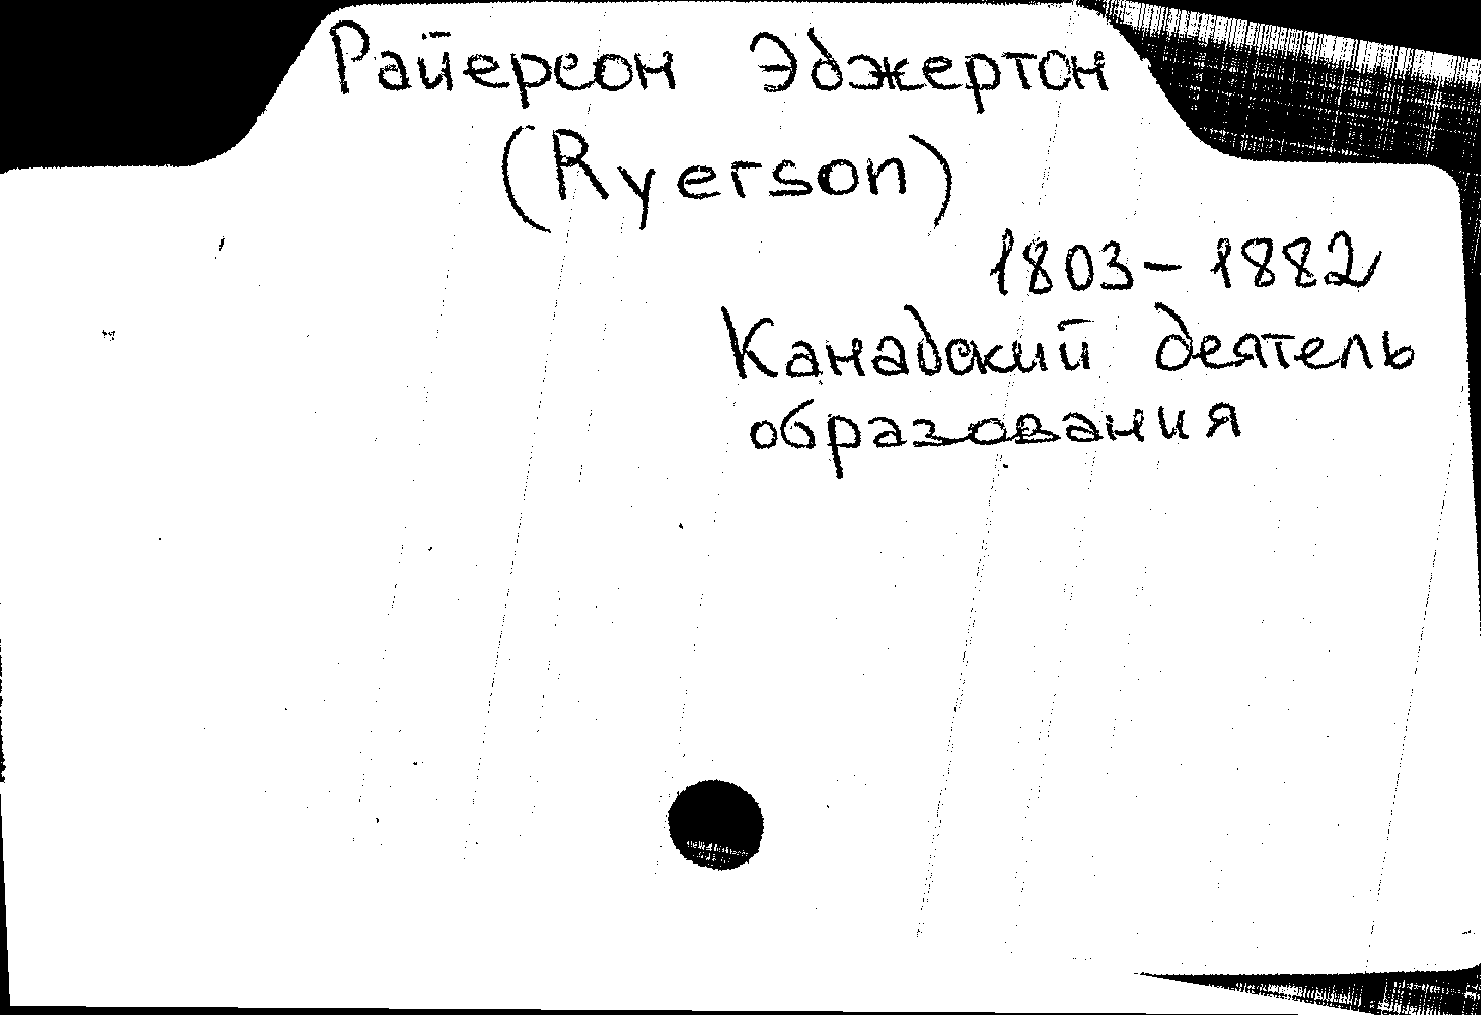 Райерсон Эджертон
(Ryerson)
1803-1882
Канадский деятель
образования